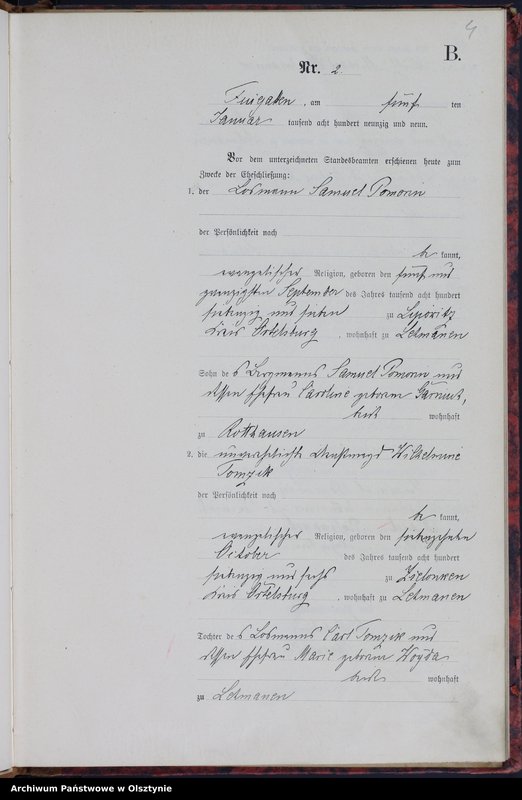 4
B.
Nr. 2.
am fünf ten
Januar tausend acht hundert neunzig und neun.
Vor dem unterzeichneten Standesbeamten erschienen heute zum
Zwecke der Eheschließung:
1. der Losmann Samuel Pomorin
der Persönlichkeit nach
be kannt,
evangelischer Religion, geboren den fünf und
zwanzigsten September des Jahres tausend acht hundert
siebenzig und sieben zu Lipowitz
Kreis Ortelsburg, wohnhaft zu Lehmanen
Sohn des Bergmanns Samuel Pomorin und
dessen Ehefrau Caroline geborene
beide wohnhaft
zu Rotthausen
2. die unverehelichte Wilhelmine
Tomzik
der Persönlichkeit nach
be kannt,
evangelischer Religion, geboren den siebenzehnten
October des Jahres tausend acht hundert
siebenzig und sechs zu Zielonken
Kreis Ortelsburg, wohnhaft zu Lehmanen
Tochter des Losmanns Carl Tomzik und
dessen Ehefrau Marie geborene Woyda
beide wohnhaft
zu Lehmanen
Archiwum Państwowe w Olsztynie